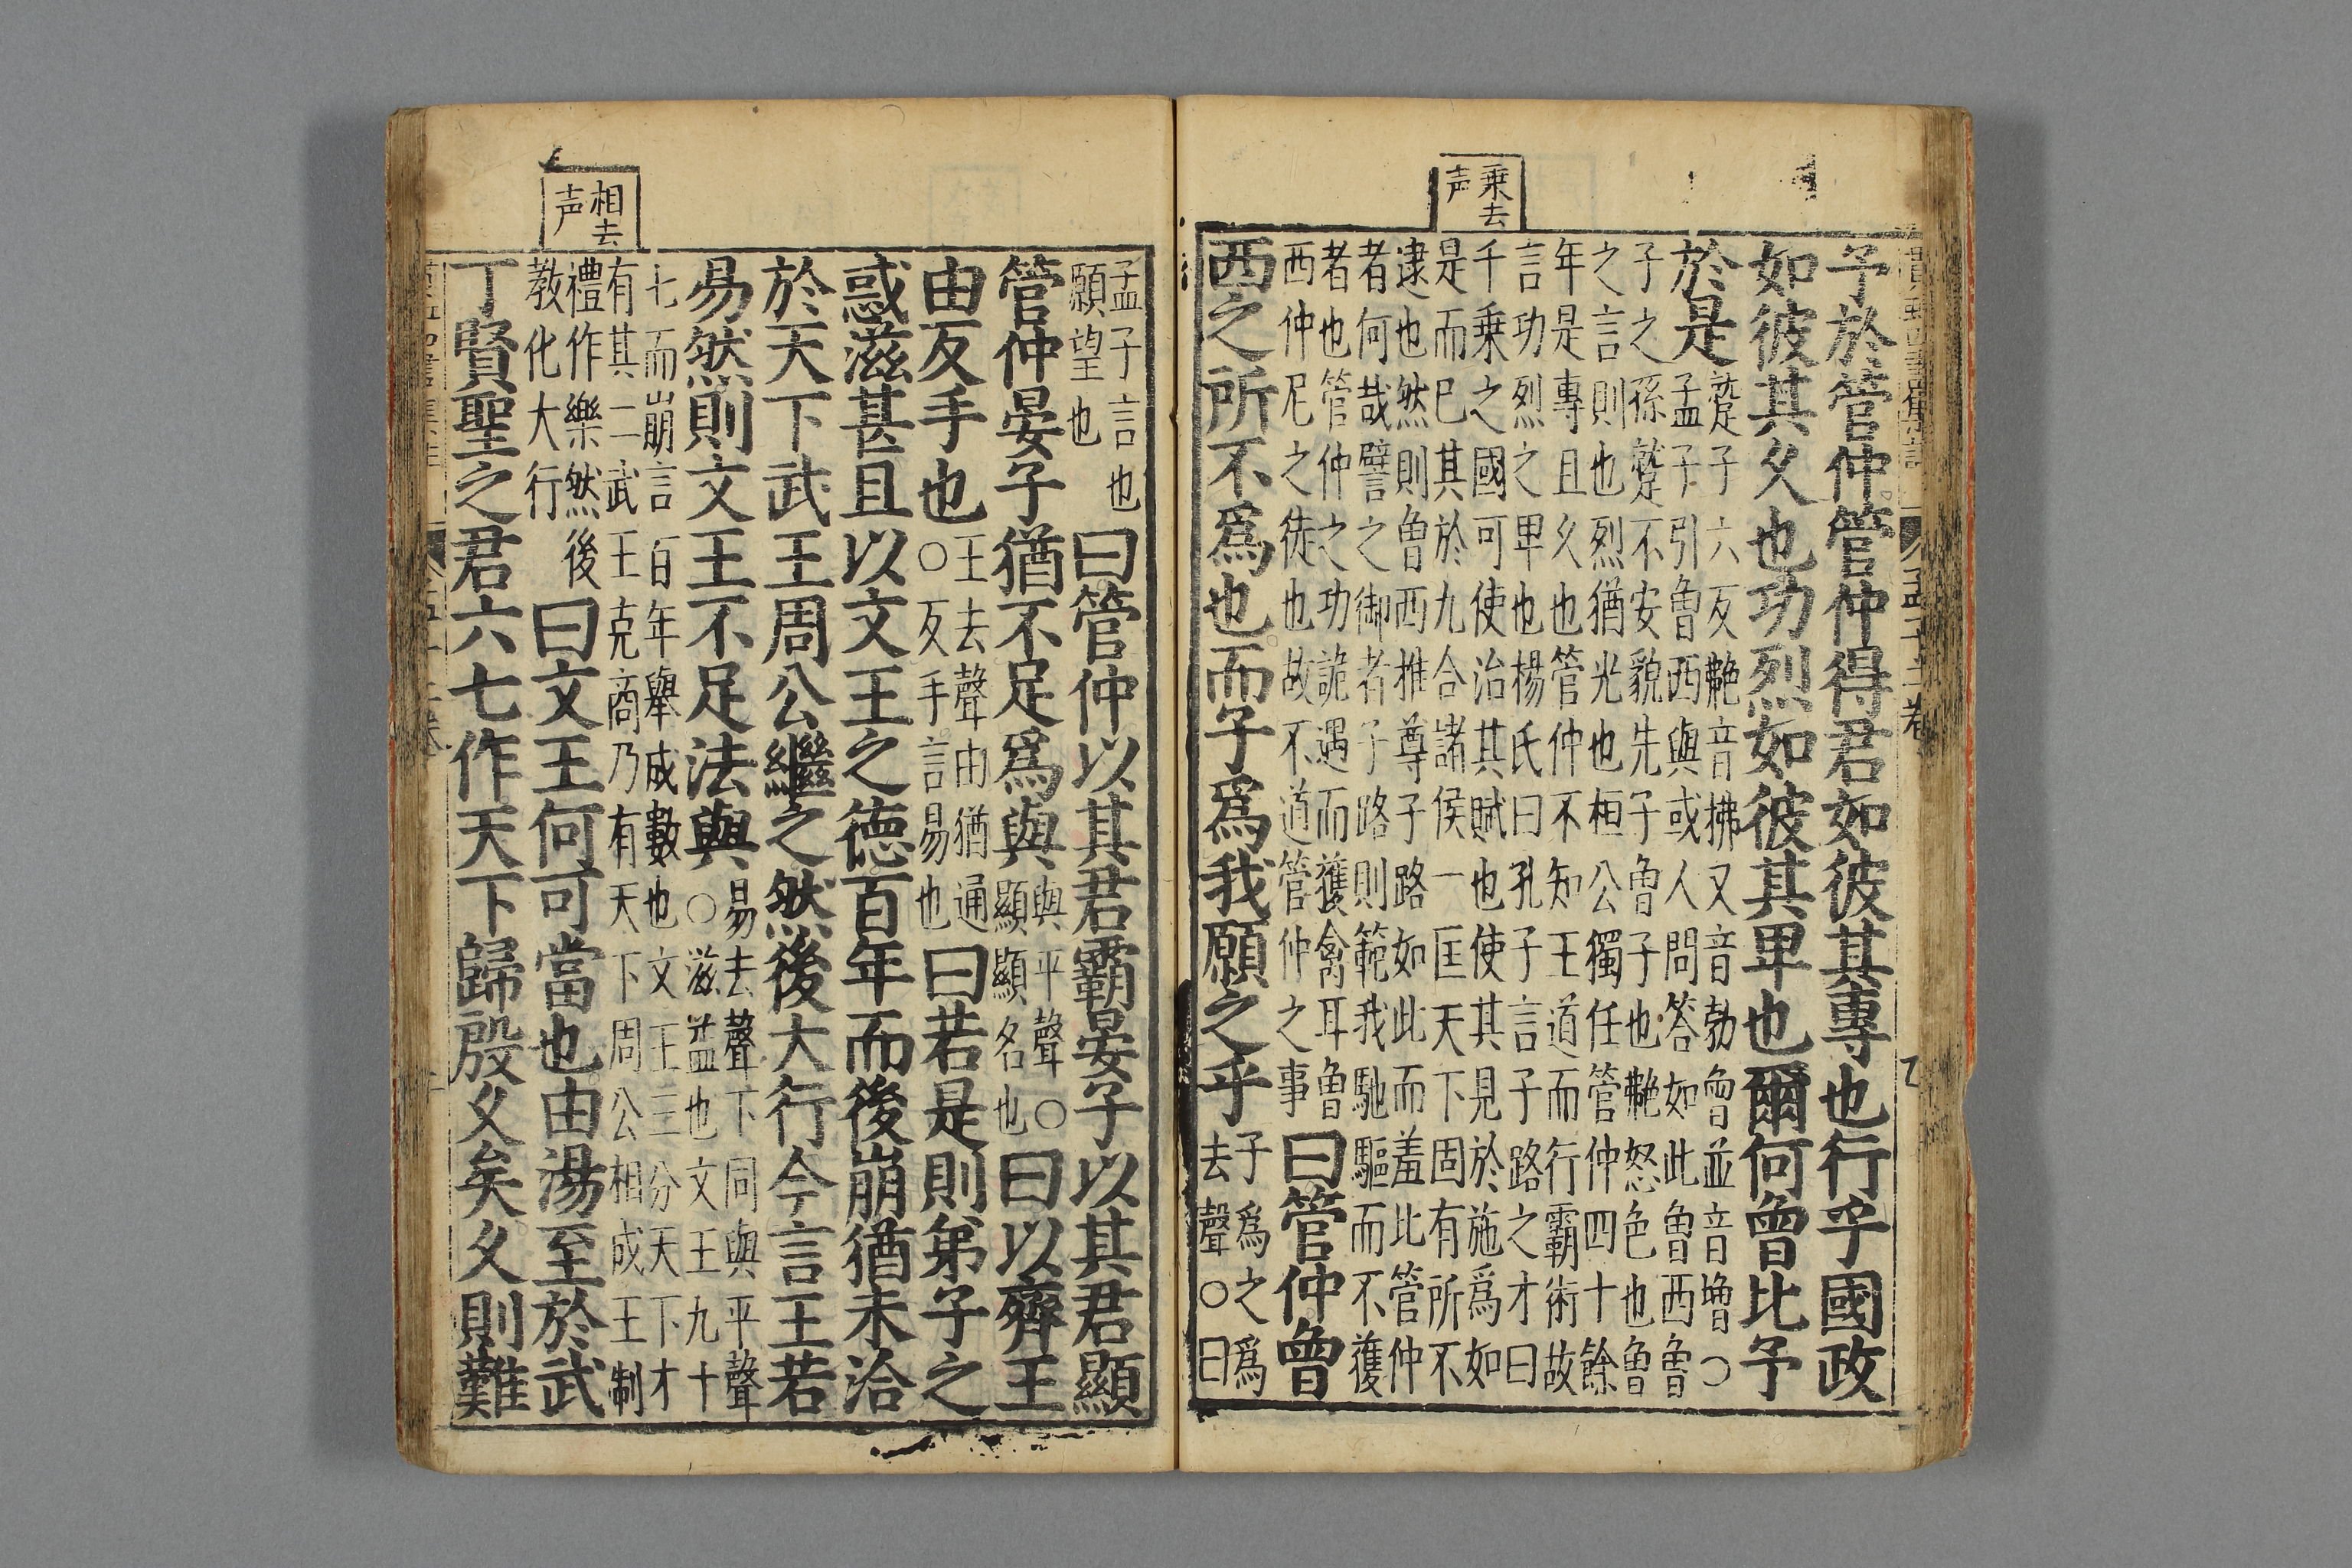 乗去
声
予於管仲管仲得君如彼其專也行乎國政
如彼其久也功烈如彼其卑也爾何曾比予
於是
蹵子六反艴音拂又音勃曾並音增○
孟子引魯西與或人問答如此魯西魯
子之孫蹵不安貌先子魯子也艴怒色也魯
之言則也烈猶光也桓公獨任管仲四十餘
年是專且久也管仲不知王道而行霸術故
言功烈之卑也楊氏曰孔子言子路之才曰
千乗之國可使治其賦也使其見於施爲如
是而已其於九合諸侯一匡天下固有所不
逮也然則魯西推尊子路如此而羞比管仲
者何哉譬之御者子路則範我馳驅而不獲
者也管仲之功詭遇而獲禽耳魯
西仲尼之徒也故不道管仲之事
曰管仲曾
西之所不爲也而子爲我願之乎
子爲之爲
去聲○曰
相去
声
孟子言也
願望也
曰管仲以其君霸晏子以其君顯
管仲晏子猶不足爲與
與平聲○
顯顯名也
曰以齊王
由反手也
王去聲由猶通
○反手言易也
曰若是則弟子之
惑滋甚且以文王之德百年而後崩猶未洽
於天下武王周公繼之然後大行今言王若
易然則文王不足法與
易去聲下同與平聲
○滋益也文王九十
七而崩言百年舉成數也文王三分天下才
有其二武王克商乃有天下周公相成王制
禮作樂然後
教化大行
曰文王何可當也由湯至於武
丁賢聖之君六七作天下歸殷久矣久則難